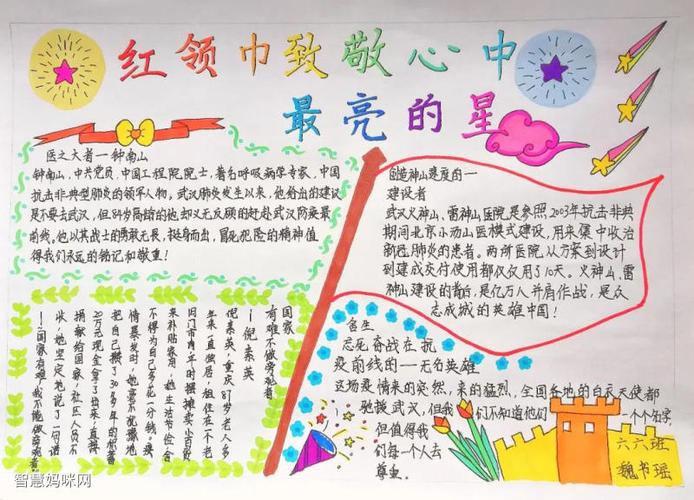 红领巾致敬心中
最亮的星
医之大者一钟南山
钟南山,中共党员,中国工程院院士,著名呼吸病学专家,中国
抗击非典型肺炎的领军人物。武汉肺炎发生以来,他给出的建议
是不要去武汉,但84岁高龄的他却义无反顾的赶赴武汉防疫最
前线。他以其战士的勇敢无畏,挺身而出,冒死犯险的精神值
得我们永远的铭记和敬重!
创造神山速度的一
建设者
武汉火神山、雷神山医院是参照2003年抗击非典
期间北京小汤山医模式建设,用来集中收治
新冠肺炎的患者。两所医院从方案到设计
到建成交付使用都仅仅用了10天。火神山、雷
神山建设的背后,是亿万人并肩作战,是众
志成城的英雄中国!
国家
有难不做旁观者
—倪素英
倪素英,重庆87岁老人多
年来一直独居,租住在一个老
旧门市内,平时摆摊卖小百货
来补贴家用,她生活节俭,舍
不得为自己多花一分钱。疫
情暴发时,她毫不犹豫地
把自己攒了30多年的积蓄
20万元现金拿了出来,直接
捐献给国家,社区人员不
收,她坚定地说了一句话
舍生
忘死奋战在抗
疫前线的一一无名英雄
这场疫情来的突然,来的猛烈,全国各地的白衣天使都
驰援武汉,但我们不知道他们一个个名字,
但值得我
们每个人去
尊重。
六六班
魏书瑶
智慧妈咪网